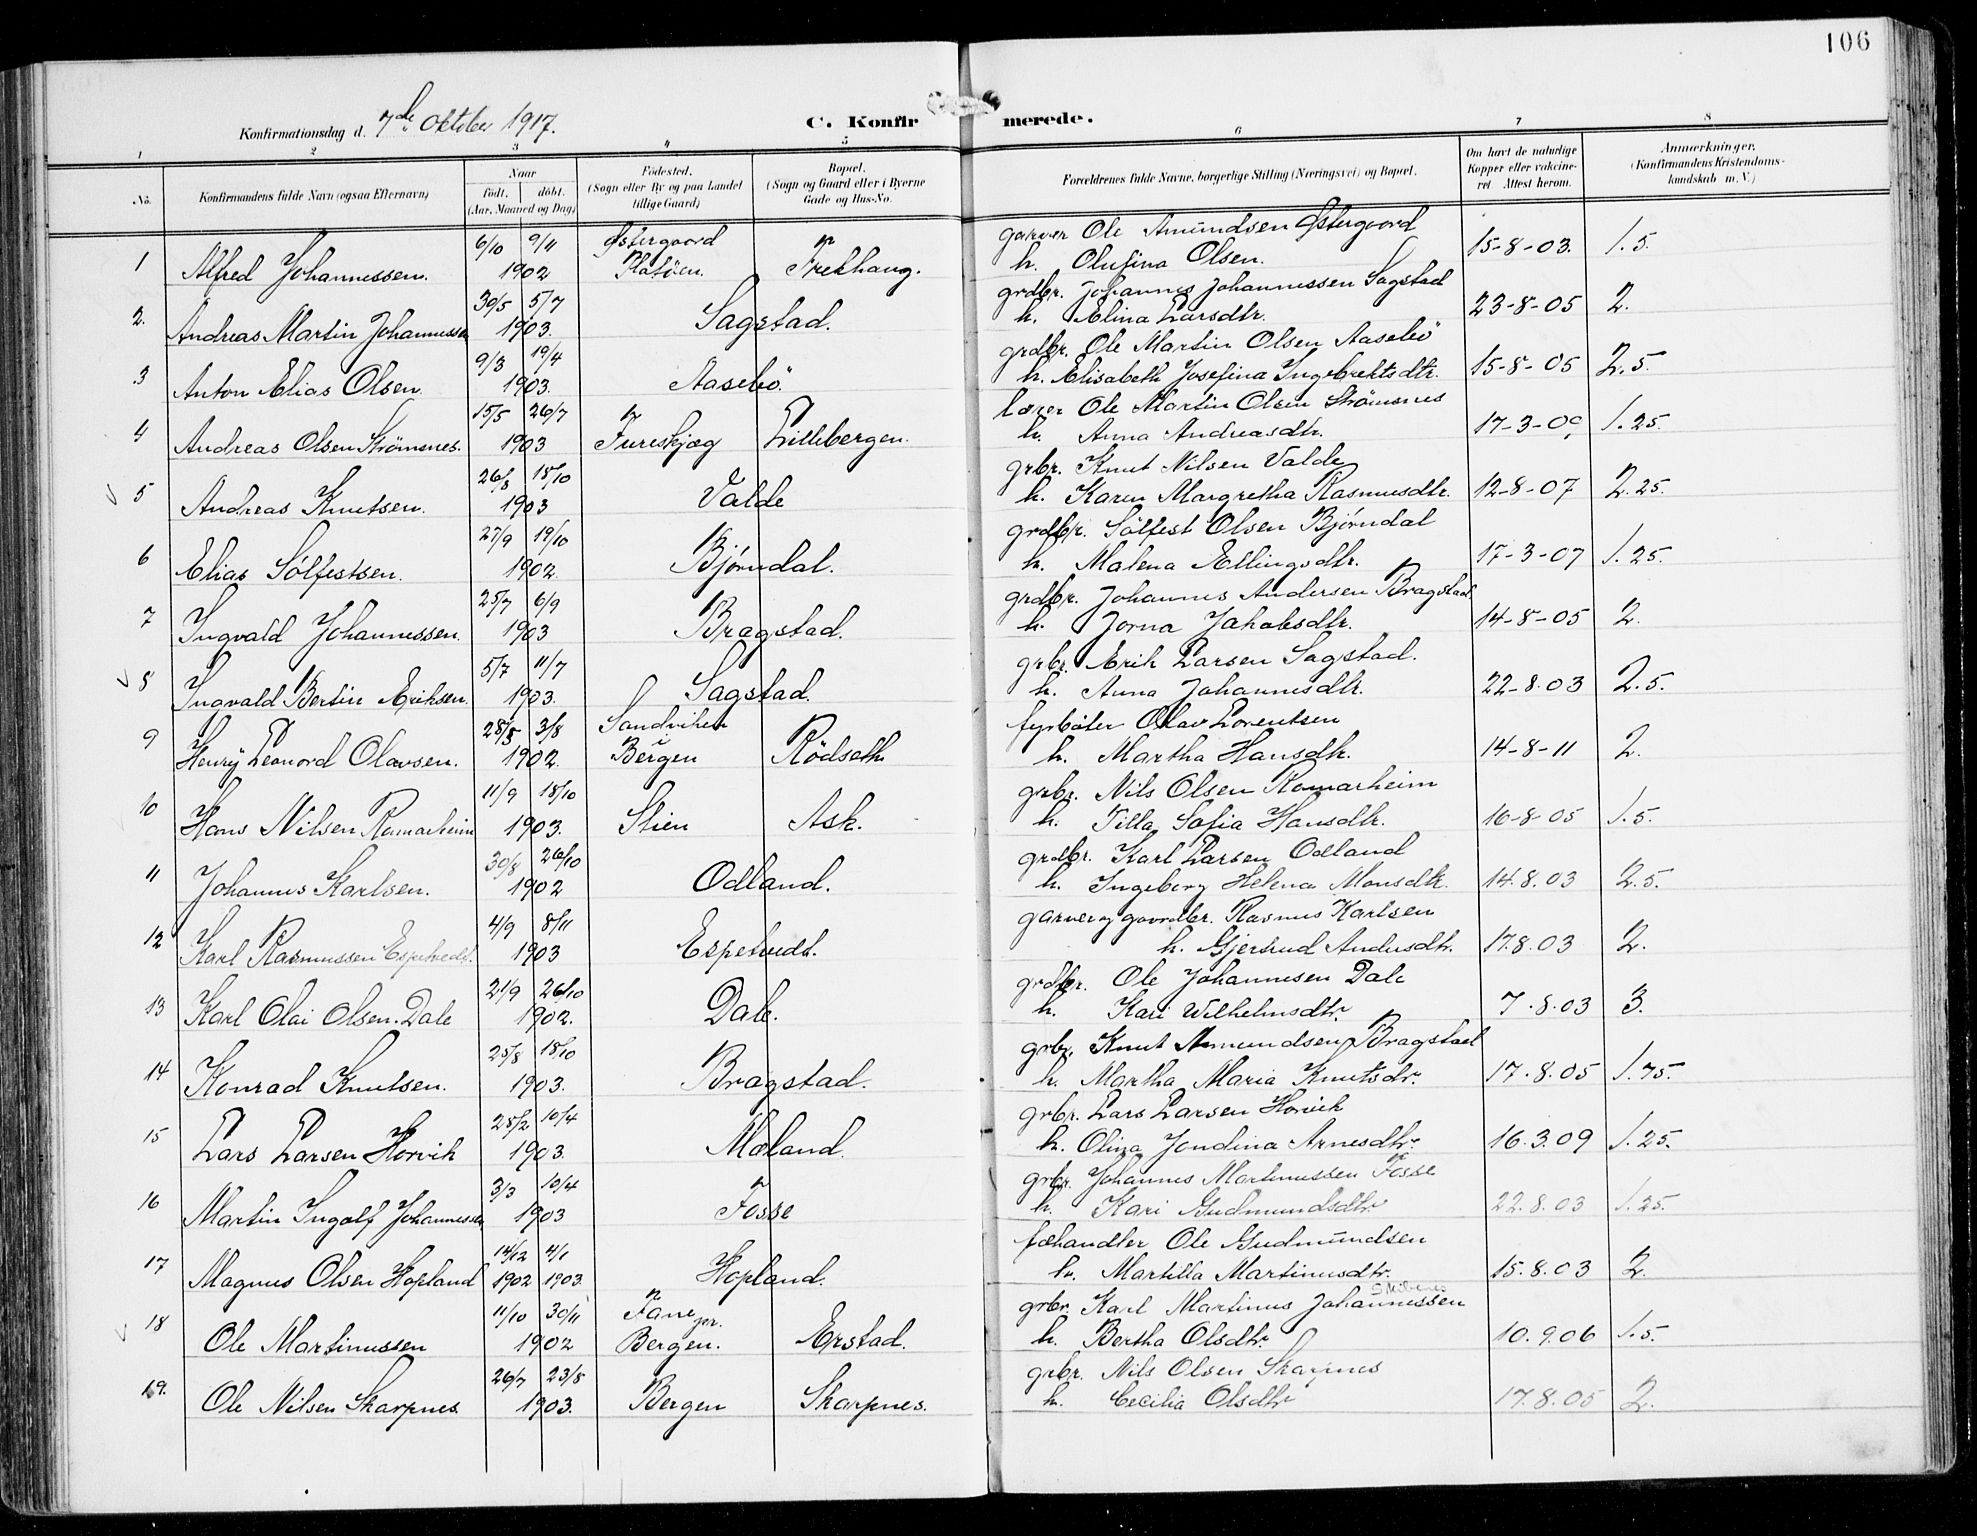 106
Konfirmationsdag d. 7de Oktober 1917.
C. Konfirmerede.
1 2 3 4 5 6 7 8
No. Konfirmandens fulde Navn (ogsaa Efternavn) Naar født. døbt. (Aar, Maaned og Dag) Fødested. (Sogn eller By og paa Landet tillige Gaard) Bopæl. (Sogn og Gaard eller i Byerne Gade og Hus-No. Forældrenes fulde Navne, borgerlige Stilling (Næringsvei) og Bopæl. Om havt de naturlige Kopper eller vaccineret. Attest herom. Anmærkninger. (Konfirmandens Kristendomskundskab m. V.)
6/10 9/11 Østergaard garver Ole Amundsen Østergaard
1 Alfred Johannessen. 1902 Frekhaug. h. Olufina Olsen. 15-8-03. 1.5.
30/5 5/7 grdbr. Johannes Johannessen Sagstad
2. Andreas Martin Johannessen 1903. Sagstad. h. Elina Larsdtr. 23-8-05 2.
9/3 19/4 grdbr. Ole Martin Olsen Aasebö
3 Anton Elias Olsen. 1903. Aasebö. h. Elisabeth Josefina Ingebrektsdtr. 15-8-05 2.5.
15/5 26/7 lærer Ole Martin Olsen Strömsnes
4 Andreas Olsen Strömsnes. 1903 Fureskjæg Lillebergen. h. Anna Andreasdtr. 17-3-09 1.25.
26/8 18/10 grbr. Knut Nilsen Valde
5 Andreas Knutsen. 1903 Valde h. Karen Margretha Rasmusdtr. 12-8-07 2.25.
27/9 19/10 grdbr. Sölfest Olsen Bjørndal
6 Elias Sölfestsen. 1902. Bjørndal. h. Malena Ellingsdtr. 17-3-07 1.25.
25/7 6/9 grdbr. Johannes Andersen Bragstad
7 Ingvald Johannessen. 1903 Bragstad. h. Jorna Jakobsdtr. 14-8-05 2.
5/7 11/7 grbr. Erik Larsen Sagstad.
8 Ingvald Bertin Eriksen. 1903. Sagstad. h. Anna Johannesdtr. 22-8.03 2.5.
28/5 3/8 Sandviken fyrböter Olav Lorentsen
9 Henrÿ Leonord Olavsen. 1902. i Bergen Rödseth h. Martha Hansdtr. 14-8-11 2.
11/9 18/10 grbr. Nils Olsen Romarheim
10 Hans Nilsen Romarheim 1903. Stien Ask. h. Tilla Sofia Hansdtr. 16-8-05 1.5.
30/8 26/10 grdbr. Karl Larsen Odland
11 Johannes Karlsen. 1902 Odland. h. Ingeborg Helena Monsdtr. 14.8.03 2.5.
4/9 8/11 garver og gaardbr. Rasmus Karlsen
12 Karl Rasmussen Espetvedt. 1903 Espetvedt. h. Gjertrud Andersdtr. 17.8.03 2.
21/9 26/10 grdbr. Ole Johannesen Dale
13 Karl Olai Olsen. Dale 1902. Dale. h. Kari Wilhelmsdtr. 7.8.03 3.
25/8 18/10 grbr. Knut Amundsen Bragstad
14 Konrad Knutsen. 1903. Bragstad. h. Martha Maria Knutsdtr. 17.8.05 1.75.
25/2 10/4 grbr. Lars Larsen Horvik
15 Lars Larsen Horvik 1903 Mæland. h. Olina Jondina Arnesdtr. 16.3.09 1.25.
3/3 10/4 grbr. Johannes Martinussen Fosse
16 Martin Ingolf Johannessen 1903 Fosse h. Kari Gudmundsdtr 22.8.03 1.25.
14/12 4/1 fæhandler Ole Gudmundsen
17 Magnus Olsen Hopland 1902 1903. Hopland. h. Martilla Martinusdtr. 15.8.03 2.
11/10 30/11 Fane pr. grbr. Karl Martinus Johannessen
18 Ole Martinussen 1902 Bergen. Erstad. h. Bertha Olsdtr. 10.9.06 1.5.
26/7 23/8 grbr. Nils Olsen Skarpnes
19. Ole Nilsen Skarpnes 1903. Bergen Skarpnes. h. Cecilia Olsdtr 17.8.05 2.